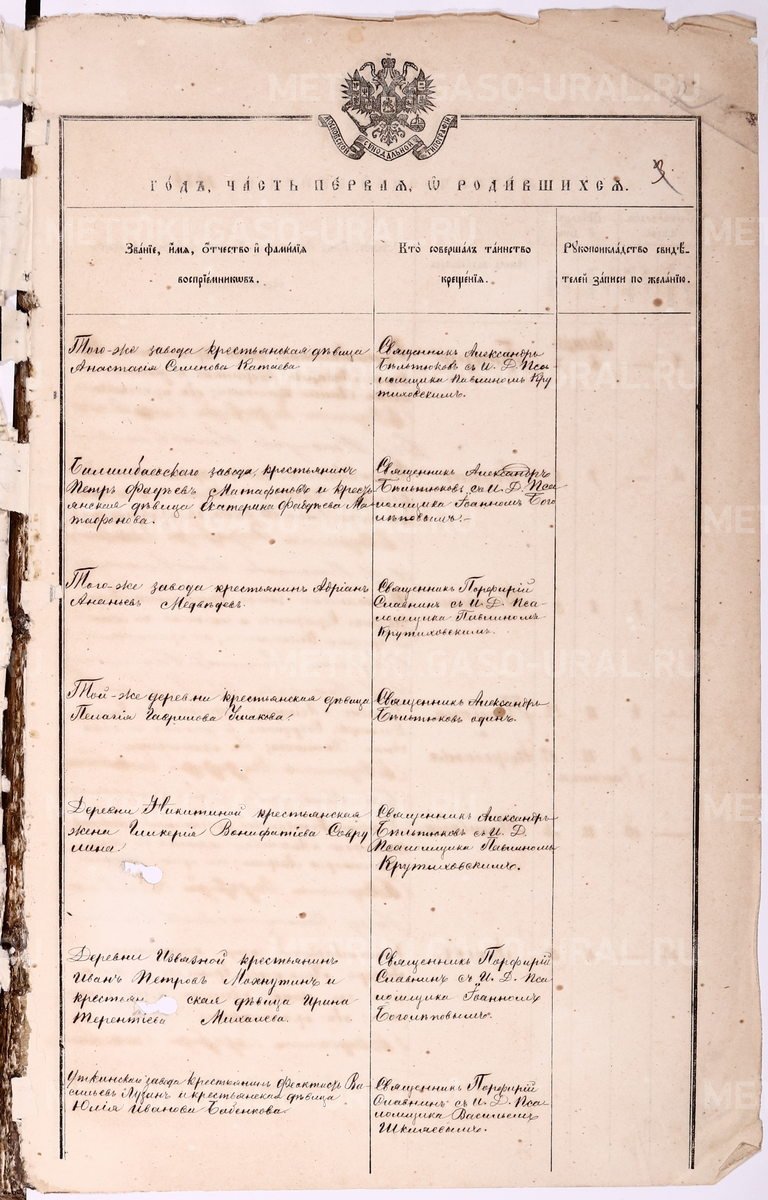 METRICS.GASO-URAL.RU
МОСКОВСКОЙ СѴНОДАЛЬНОЙ ТИПОГРАФІИ
ГОДЪ, ЧАСТЬ ПЕРВАЯ, Ѡ РОДИВШИХСЯ.
3
Званіе, имя, отчество и фамилія
воспріемниковъ.
Кто совершалъ таинство
крещенія.
Рукоприкладство свидѣ-
телей записи по желанію.
Того-же завода крестьянская дѣвица
Анастасія Семенова Катаева
Священникъ Александръ
Бѣльтюковъ съ И. Д. Пса
ломщика Павлиномъ Кру
тиховскимъ.
Билимбаевскаго завода, крестьянинъ
Петръ Фадѣевъ Матафоновъ и кресть
янская дѣвица Екатерина Фадѣева Ма
тафонова.
Священникъ Александръ
Бѣльтюковъ съ И. Д. Пса
ломщика Іоанномъ Бого
лѣповымъ.
Того-же завода крестьянинъ Адріанъ
Ананьевъ Медвѣдевъ.
Священникъ Порфирій
Славнинъ съ И. Д. Пса-
ломщика Павлиномъ
Крутиховскимъ.
Той-же деревни крестьянская дѣвица
Пелагія Гаврилова Ушакова.
Священникъ Александръ
Бѣльтюковъ одинъ.
Деревни Никитиной крестьянская
жена Гликерія Вонифатіева Совру
лина.
Священникъ Александръ
Бѣльтюковъ съ И. Д.
Псаломщика Павлиномъ
Крутиховскимъ.
Деревни Извѣзной крестьянинъ
Иванъ Петровъ Мохнутинъ и
крестьян ская дѣвица Ирина
Терентіева Михалева.
Священникъ Порфирій
Славнинъ съ И. Д. Пса
ломщика Іоанномъ
Боголѣповымъ.
Уткинскаго завода крестьянинъ Феоктистъ Ва-
сильевъ Лузинъ и крестьянская дѣвица
Юлія Иванова Бабенкова
Священникъ Порфирій
Славнинъ съ И. Д. Пса
ломщика Васильемъ
Шкляевымъ.